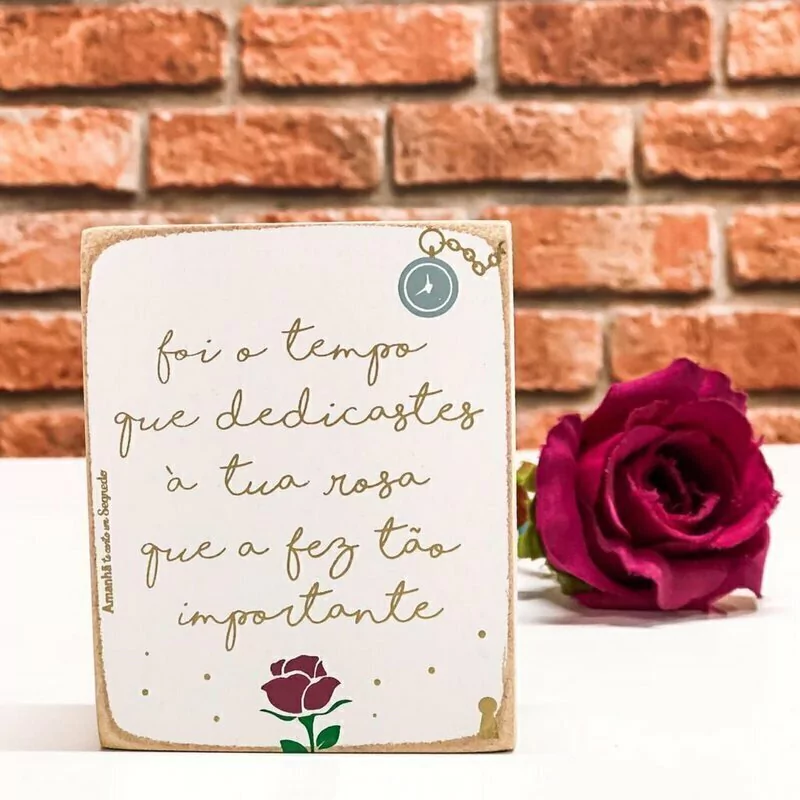 foi o tempo
que dedicastes
à tua rosa
que a fez tão
importante
Amanhã te conto um Segredo